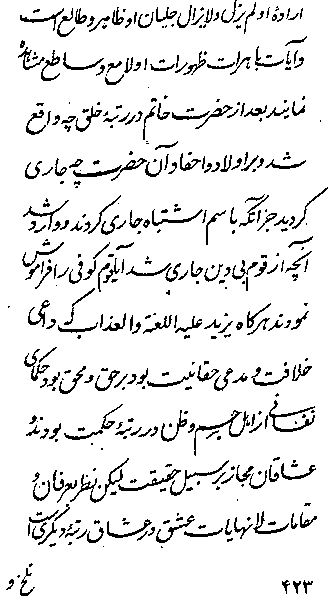 ارادهٔ او لم یزل و لایزال جلیان او ظاهر و طالع است
و آیات باهرات ظهورات او لامع و ساطع مشاهده
نمایند بعد از حضرت خاتم در رتبهٔ خلق چه واقع
شد و بر اولاد و احفاد آن حضرت چه جاری
گردید جز آنکه باسم اشتباه جاری کردند و وارد شد
آنچه از قوم بی دین جاری شد آیا قوم کوفی را فراموش
نمودند هرکاه یزید علیه اللعنة والعذاب که داعی
خلافت و مدعی حقانیت بود بر حق و محق بود حکمای
از اهل جرم و ظن در رتبهٔ حکمت بودند و
عاشقان مجاز بر سبیل حقیقت لیکن نظر بعرفان و
مقامات لانهایات عشق در عشاق رتبهٔ دیگری است
تلخ و
۴۲۳